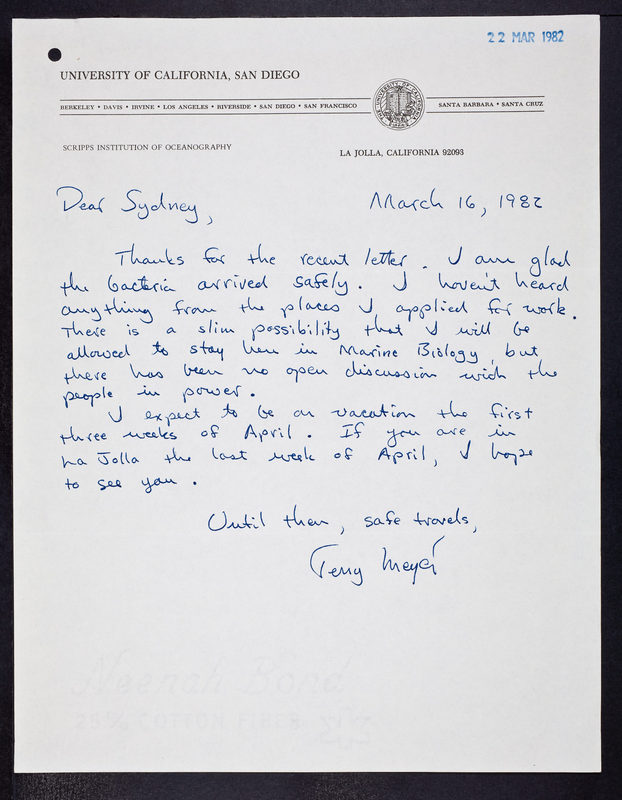 22 MAR 1982
UNIVERSITY OF CALIFORNIA, SAN DIEGO
BERKELEY • DAVIS • IRVINE • LOS ANGELES • RIVERSIDE • SAN DIEGO • SAN FRANCISCO
SANTA BARBARA • SANTA CRUZ
SCRIPPS INSTITUTION OF OCEANOGRAPHY
LA JOLLA, CALIFORNIA 92093
Dear Sydney,
March 16, 1982
Thanks for the recent letter. I am glad
the bacteria arrived safely. I haven't heard
anything from the places I applied for work.
There is a slim possibility that I will be
allowed to stay here in Marine Biology, but
there has been no open discussion with the
people in power.
I expect to be on vacation the first
three weeks of April. If you are in
La Jolla the last week of April, I hope
to see you.
Until then, safe travels,
Terry Meyer
Neenah Bond
25% COTTON FIBER